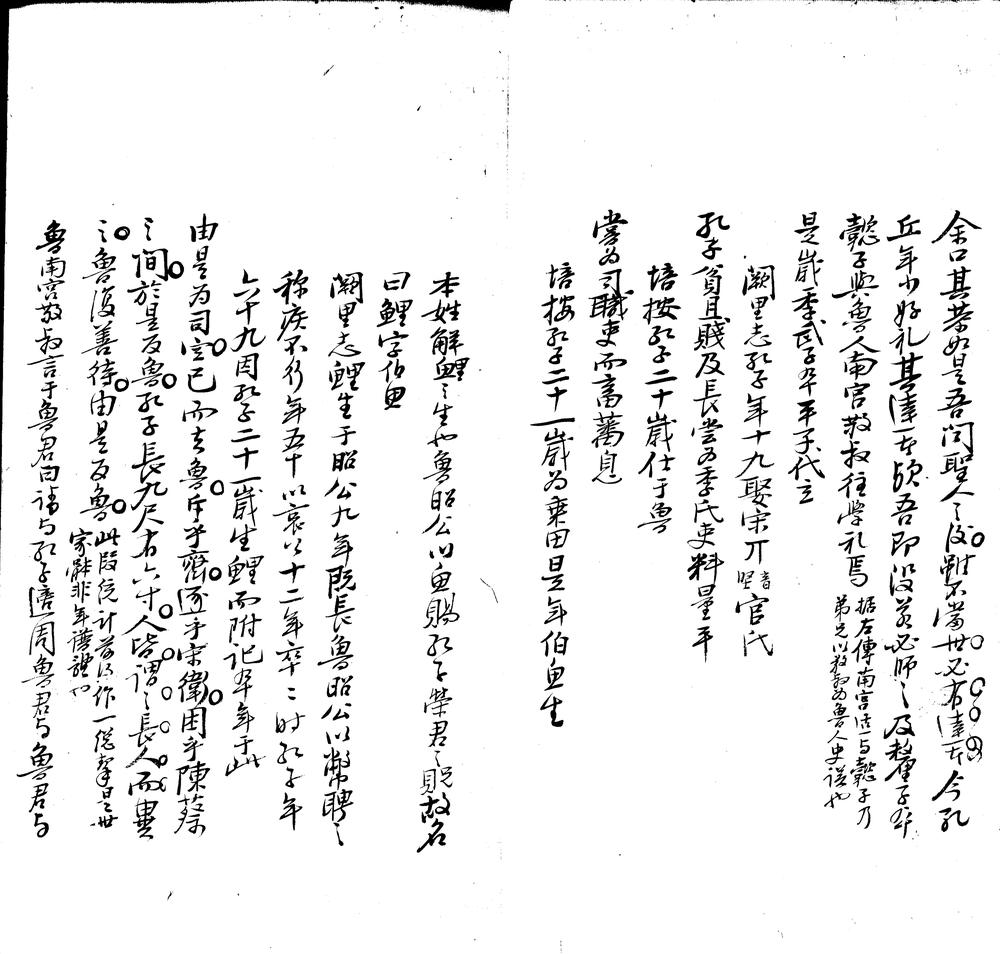 余口其恭如是吾聞聖人之後雖不當世必有達者今孔
丘年少好礼其達者欤吾即没若必師之及釐子卒
懿子與魯人南宮敬叔往学礼焉據左傳南宮适与懿子乃弟兄以敬叔為魯人史誤也
是歲季武子卒平子代立
闕里志孔子年十九娶宋亓音堅官氏
孔子貧且賤及長嘗為季氏吏料量平
培按孔子二十歲仕于魯
嘗為司職吏而畜蕃息
培按孔子二十一歲為乘田是年伯魚生
本姓解鯉之生也魯昭公以魚賜孔子榮君之貺故名
曰鯉字伯魚
闕里志鯉生于昭公九年既長魯昭公以幣聘之
称疾不行年五十以哀公十二年卒時孔子年
六十九因孔子二十一歲生鯉而附記卒年于此
由是为司空已而去魯斥乎齊逐乎宋衛困乎陳蔡
之間於是反魯孔子長九尺有六寸人皆謂之長人而異
之魯復善待由是反魯此段統計前後作一總挈是世家體非年譜體也
魯南宮敬叔言于魯君曰請与孔子適周魯君与魯君与